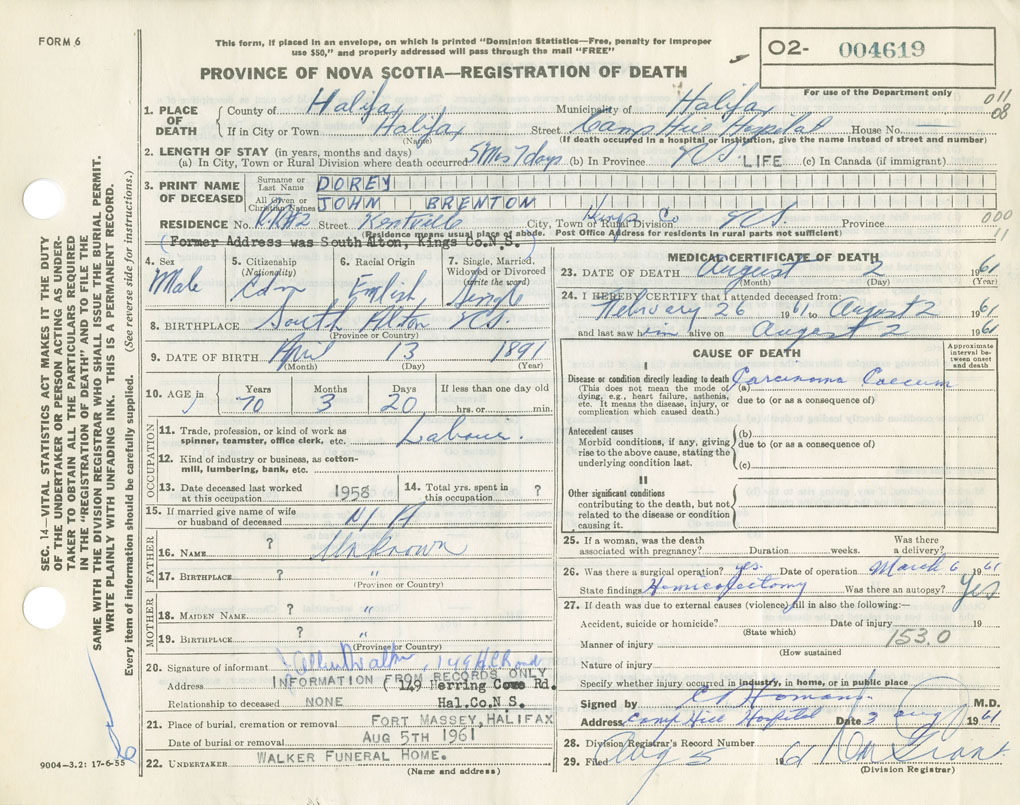 FORM 6
This form, if placed in an envelope, on which is printed "Dominion Statistics—Free, penalty for improper
use $50," and properly addressed will pass through the mail "FREE"
O2- 004619
For use of the Department only
PROVINCE OF NOVA SCOTIA—REGISTRATION OF DEATH
011
08
1. PLACE OF DEATH
County of Halifax Municipality of Halifax
If in City or Town Halifax Street Camp Hill Hospital House No. —
(Name) (If death occurred in a hospital or institution, give the name instead of street and number)
2. LENGTH OF STAY (in years, months and days)
(a) In City, Town or Rural Division where death occurred 5 Mos 7 days (b) In Province NS LIFE (c) In Canada (if immigrant)
3. PRINT NAME OF DECEASED
Surname or Last Name DOREY
All Given or Christian Names JOHN BRENTON
RESIDENCE No. R.R.#2 Street Kentville City, Town or Rural Division Kings Co NS. Province
000
11
(Residence means usual place of abode. Post Office Address for residents in rural parts not sufficient)
(Former Address was South Alton, Kings Co.N.S.)
4. Sex
Male
5. Citizenship
(Nationality)
Cdn
6. Racial Origin
English
7. Single, Married,
Widowed or Divorced
(write the word)
Single
8. BIRTHPLACE South Alton NS.
(Province or Country)
9. DATE OF BIRTH April 13 1891
(Month) (Day) (Year)
10. AGE in
Years Months Days If less than one day old
70 3 20 hrs. or min.
OCCUPATION
11. Trade, profession, or kind of work as
spinner, teamster, office clerk, etc. Labour.
12. Kind of industry or business, as cotton-
mill, lumbering, bank, etc.
13. Date deceased last worked
at this occupation 1958
14. Total yrs. spent in
this occupation ?
15. If married give name of wife
or husband of deceased N A
FATHER
16. NAME ? Unknown
17. BIRTHPLACE ? "
(Province or Country)
MOTHER
18. MAIDEN NAME ? "
19. BIRTHPLACE ? "
(Province or Country)
20. Signature of informant Walker, 149 H.C. Road
INFORMATION FROM RECORDS ONLY
Address (149 Herring Cowe Rd.
Relationship to deceased NONE Hal.Co.N.S.
21. Place of burial, cremation or removal FORT MASSEY, HALIFAX
Date of burial or removal AUG 5TH 1961
22. UNDERTAKER WALKER FUNERAL HOME.
(Name and address)
9004-3.2: 17-6-55
SEC. 14—VITAL STATISTICS ACT MAKES IT THE DUTY
OF THE UNDERTAKER OR PERSON ACTING AS UNDER-
TAKER TO OBTAIN ALL THE PARTICULARS REQUIRED
IN THE "REGISTRATION OF DEATH" AND TO FILE THE
SAME WITH THE DIVISION REGISTRAR WHO SHALL ISSUE THE BURIAL PERMIT.
WRITE PLAINLY WITH UNFADING INK. THIS IS A PERMANENT RECORD.
Every item of information should be carefully supplied. (See reverse side for instructions.)
MEDICAL CERTIFICATE OF DEATH
23. DATE OF DEATH August 2 1961
(Month) (Day) (Year)
24. I HEREBY CERTIFY that I attended deceased from:
February 26 1961 to August 2 1961
and last saw him alive on August 2 1961
CAUSE OF DEATH
Approximate
interval be-
tween onset
and death
I
Disease or condition directly leading to death
(This does not mean the mode of
dying, e.g., heart failure, asthenia,
etc. It means the disease, injury, or
complication which caused death.)
(a) Carcinoma Caecum
due to (or as a consequence of)
Antecedent causes
Morbid conditions, if any, giving
rise to the above cause, stating the
underlying condition last.
(b)
due to (or as a consequence of)
(c)
II
Other significant conditions
contributing to the death, but not
related to the disease or condition
causing it.
25. If a woman, was the death
associated with pregnancy? Duration weeks. Was there
a delivery?
26. Was there a surgical operation? yes. Date of operation March 6 1961
State findings Hemicolectomy Was there an autopsy? Yes
27. If death was due to external causes (violence) fill in also the following:—
Accident, suicide or homicide? Date of injury 19
(State which)
Manner of injury 153.0
(How sustained
Nature of injury
Specify whether injury occurred in industry, in home, or in public place
Signed by Homans M.D.
Address Camp Hill Hospital Date 3 aug 1961
28. Division Registrar's Record Number
29. Filed Aug 5 1961 Grant
(Division Registrar)